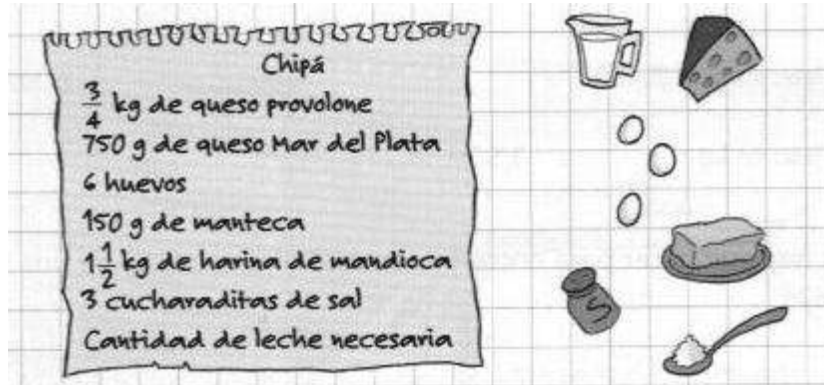 Chipá
3/4 kg de queso provolone
750 g de queso Mar del Plata
6 huevos
150 g de manteca
1 1/2 kg de harina de mandioca
3 cucharaditas de sal
Cantidad de leche necesaria
S